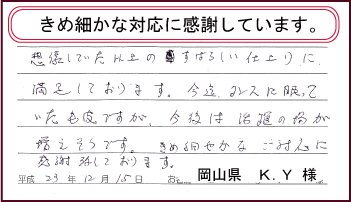 きめ細かな対応に感謝しています。
想像していた以上のすばらしい仕上りに、
満足しております。今迄タンスに眠って
いた毛皮ですが、今後は活躍の場が
増えそうです。きめ細やかなご対応に
感謝致しております。
平成 23 年 12 月 15 日 お 岡山県 K.Y 様